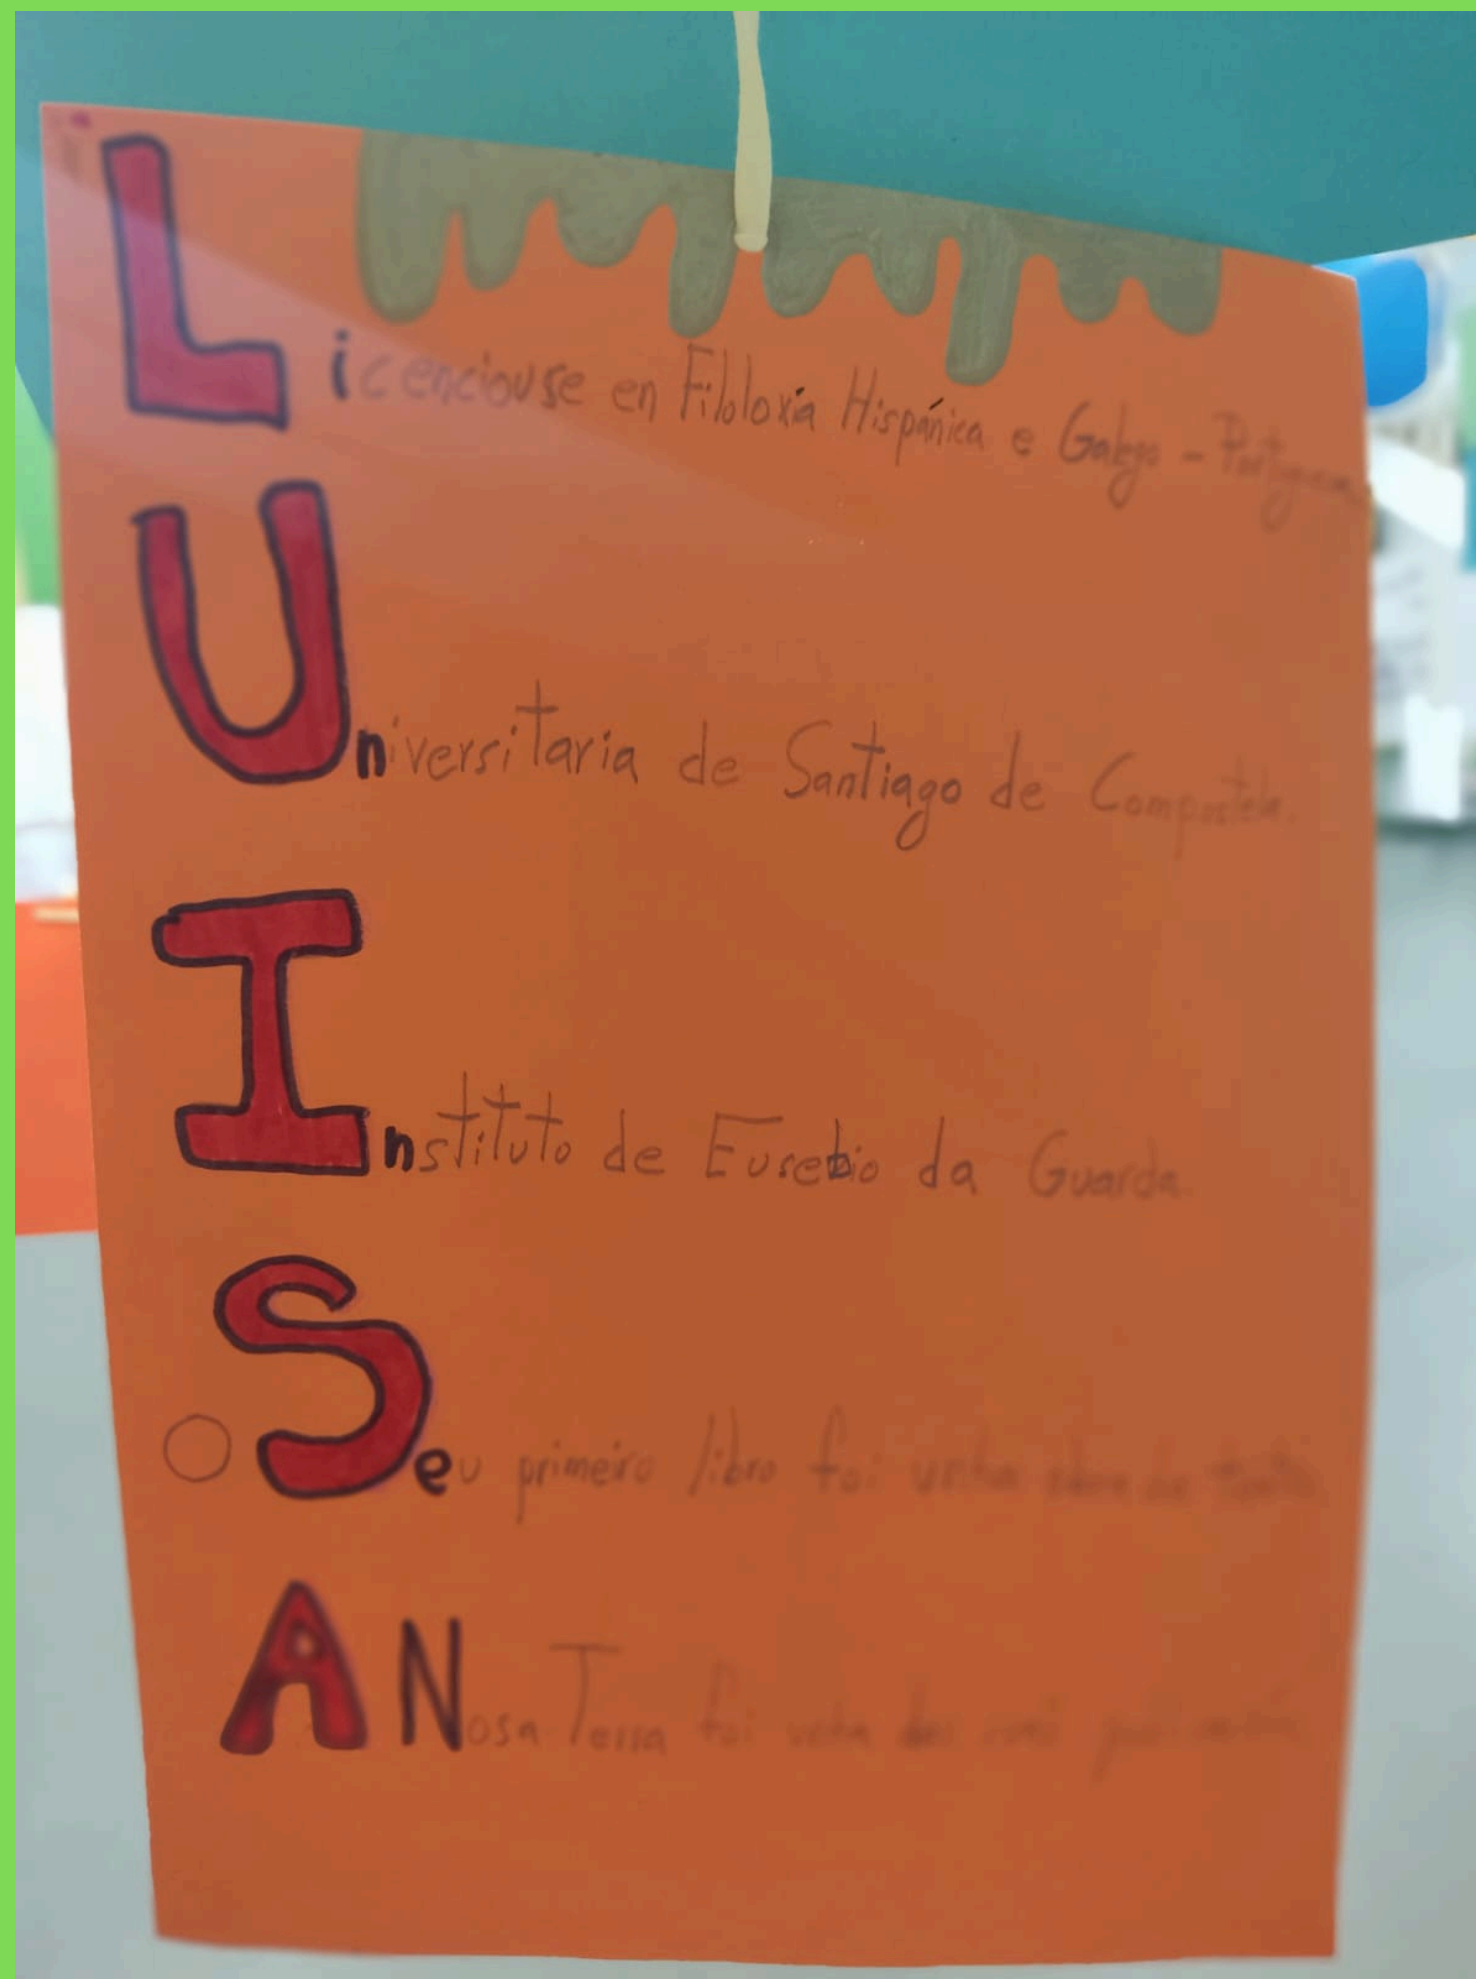 Licenciouse en Filoloxía Hispánica e Galego - Portuguesa
Universitaria de Santiago de Compostela.
Instituto de Eusebio da Guarda.
O Seu primeiro libro foi unha
A Nosa Terra foi unha